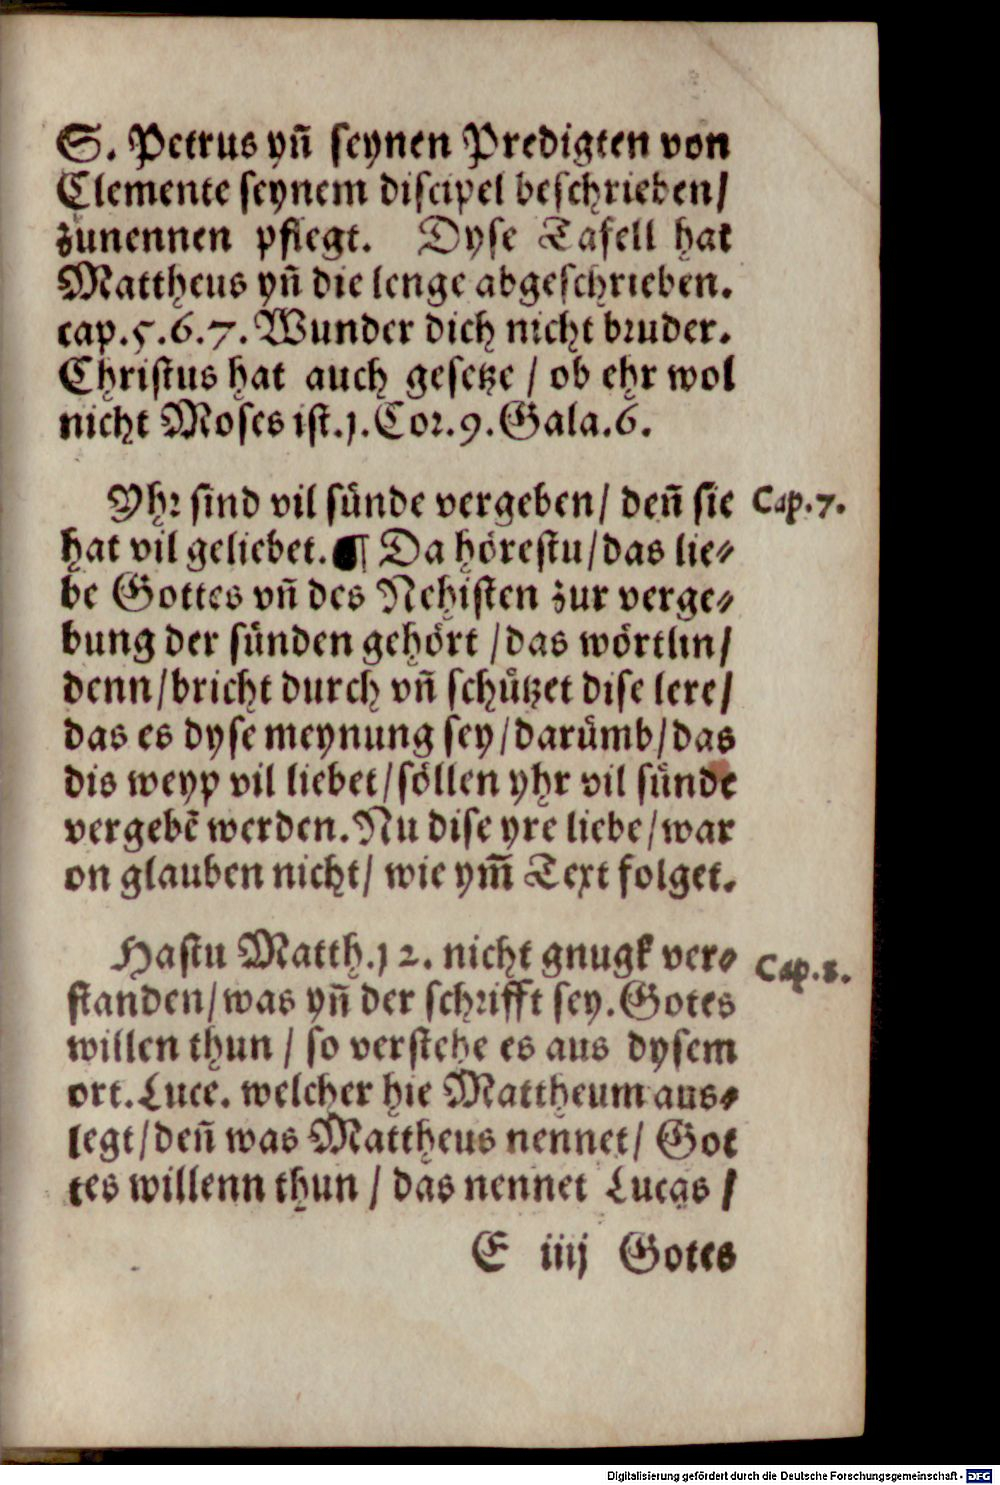 S. Petrus yn̄ seynen Predigten von
Clemente seynem discipel beschrieben/
zunennen pflegt. Dyse Tafell hat
Mattheus yn̄ die lenge abgeschrieben.
cap.5.6.7. Wunder dich nicht bruder.
Christus hat auch gesetze / ob ehr wol
nicht Moses ist.1.Cor.9.Gala.6.
Yhr sind vil sünde vergeben/ den̄ sie
Cap.7.
hat vil geliebet. ¶ Da hörestu/das lie-
be Gottes vn̄ des Nehisten zur verge-
bung der sünden gehört /das wörtlin/
denn/bricht durch vn̄ schützet dise lere/
das es dyse meynung sey/darümb/das
dis weyp vil liebet/söllen yhr vil sünde
vergebē werden.Nu dise yre liebe/war
on glauben nicht/ wie ym̄ Text folget.
Hastu Matth.12. nicht gnugk ver-
Cap.8.
standen/was yn̄ der schrifft sey.Gotes
willen thun / so verstehe es aus dysem
ort.Luce. welcher hie Mattheum aus-
legt/den̄ was Mattheus nennet/ Got
tes willenn thun / das nennet Lucas /
E iiij Gotes
Digitalisierung gefördert durch die Deutsche Forschungsgemeinschaft - DFG